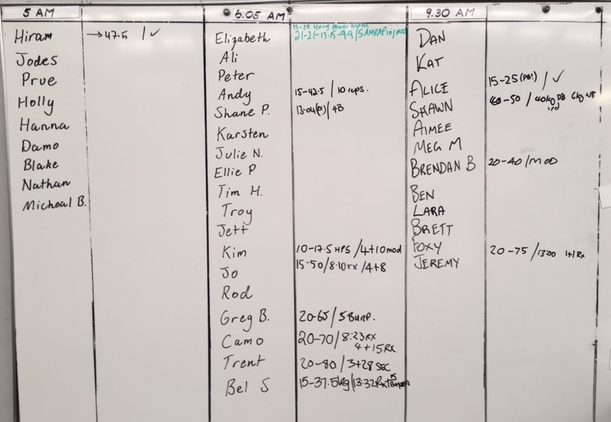 5 AM
Hiram →47.5 / ✓
Jodes
Prue
Holly
Hanna
Damo
Blake
Nathan
Micheal B.
6.05 AM
Elizabeth 21-21-15-15-9-9/5 AMRAP
Ali
Peter
Andy 15-42.5 / 10 cups.
Shane P. 13:04(P)/48
Karsten
Julie N.
Ellie P
Tim H.
Troy
Jett
Kim 10-17.5 HPS /4+10 mod
Jo 15-50/8:10 rx /4+8
Rod
Greg B. 20-65/5 Burp.
Camo 20-70/8:23 RX
4+15 RX
Trent 20-80 / 3+28 SEC
Bel S 15-37.5kg/13:32 Rx
9.30 AM
DAN
KAT
ALICE 15-25(PB!) / ✓
SHAWN 40-50 / 40kg DB
AIMEE
MEG M
BRENDAN B 20-40/MOD
BEN
LARA
BRETT
FOXY
JEREMY 20-75 / 13:00 1+1 Rx